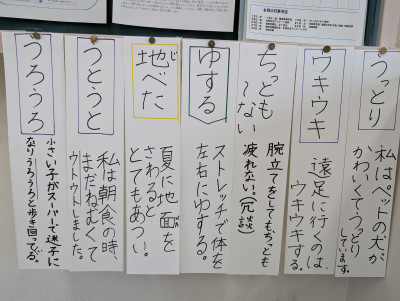 6月の行事予定
うっとり
私はペットの犬が
かわいくてうっとり
しています。
ウキウキ
遠足に行くのは、
ウキウキする。
ちっとも
〜ない
腕立てをしてもちっとも
疲れない。(冗談)
ゆする
ストレッチで体を
左右にゆする。
じ
地べた
夏に地面を
さわると
とてもあつい。
うとうと
私は朝食の時、
まだねむくて
ウトウトしました。
うろうろ
小さい子がスーパーで迷子に
なりうろうろと歩き回ってる。